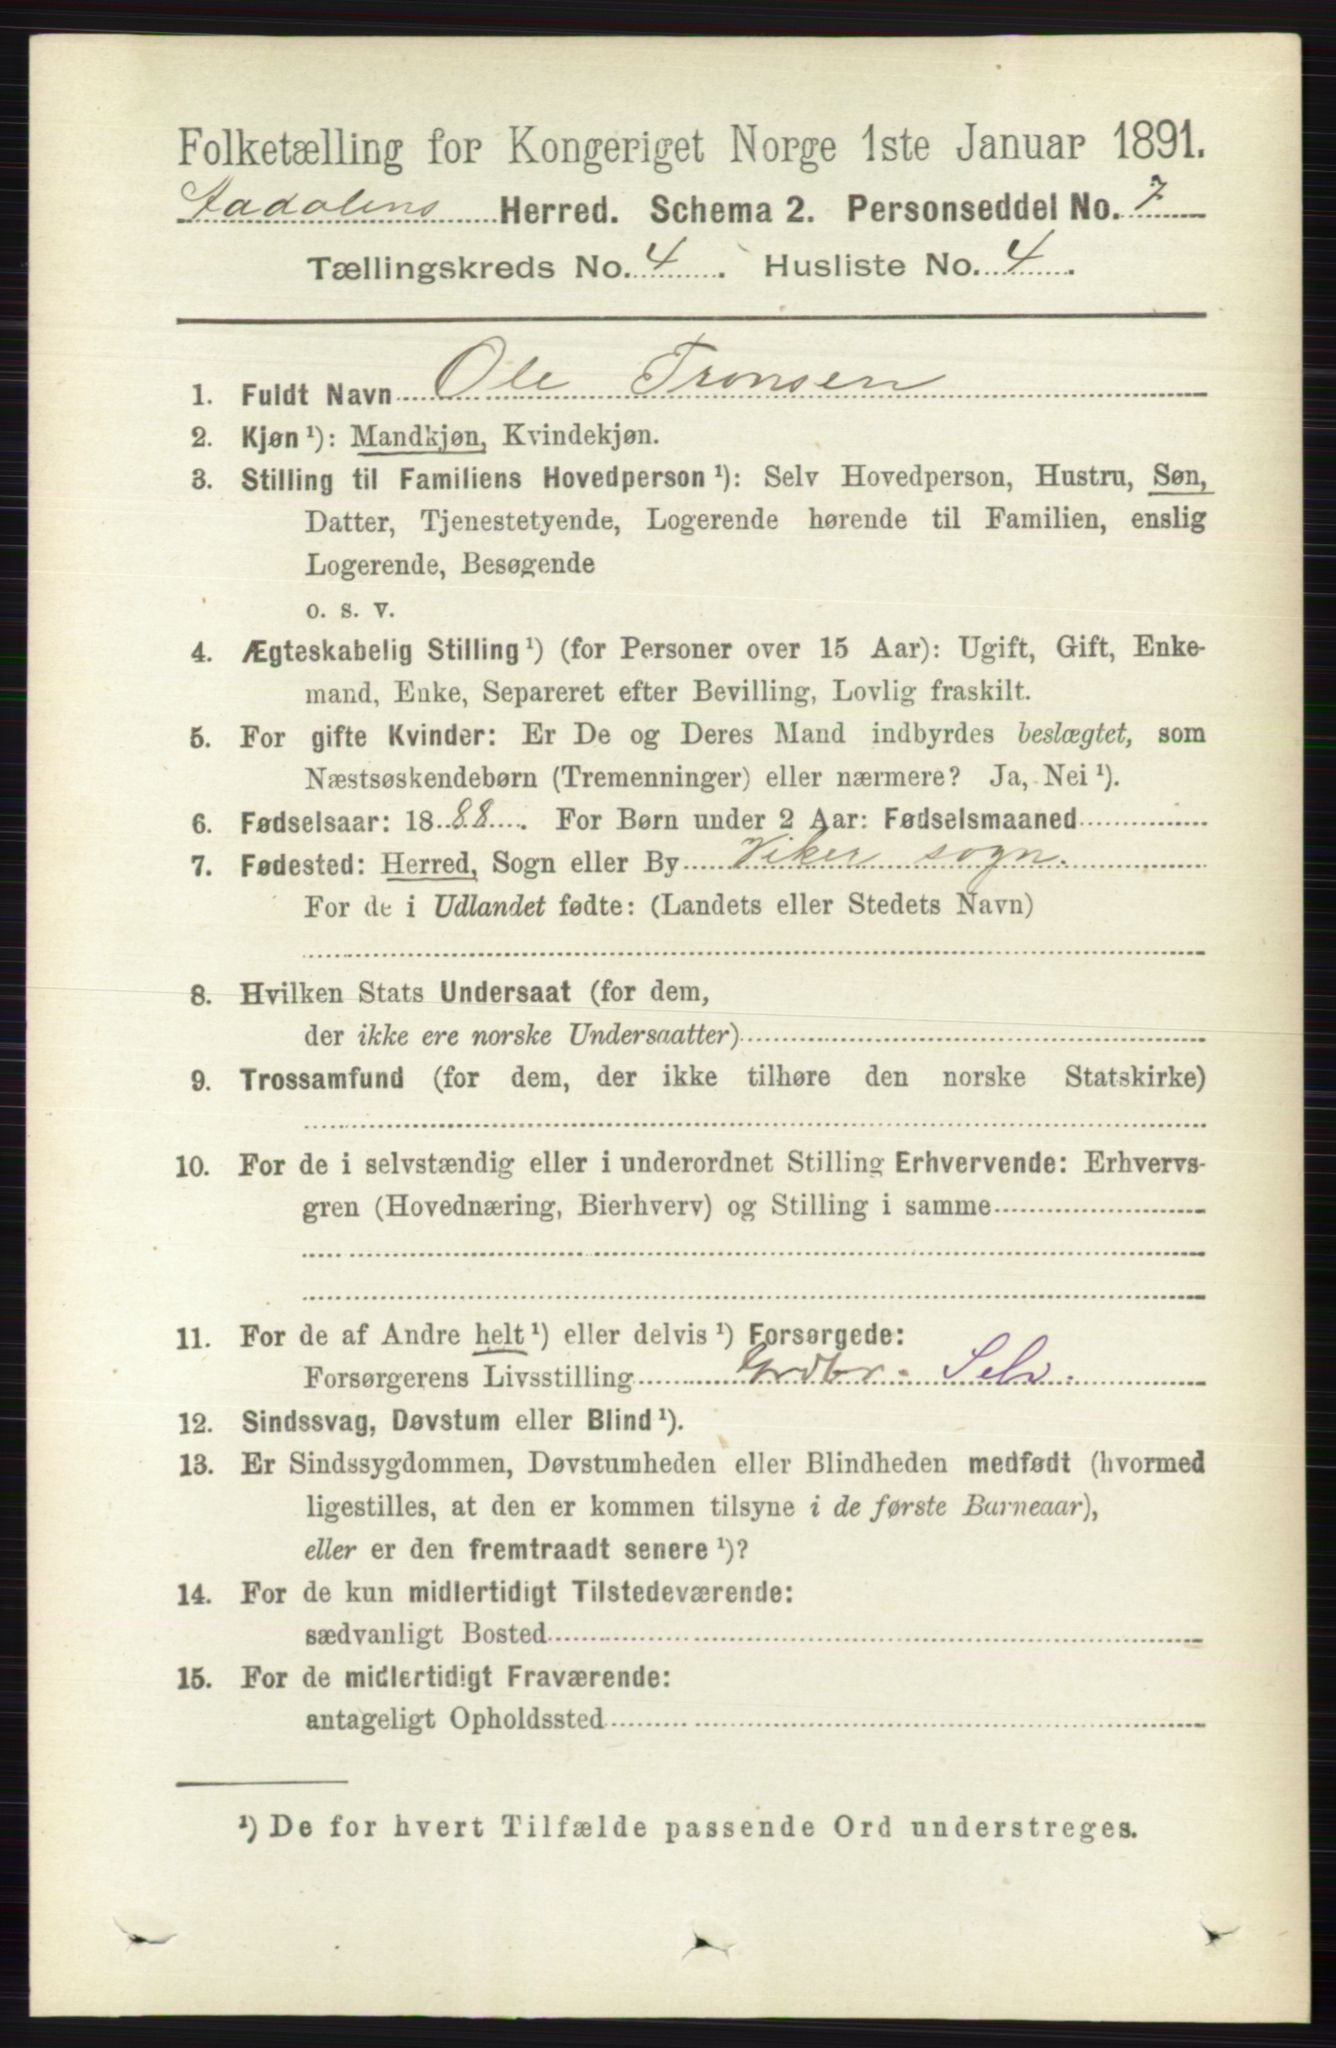 Folketælling for Kongeriget Norge 1ste Januar 1891.
Aadalens Herred. Schema 2. Personseddel No. 7
Tællingskreds No. 4. Husliste No. 4.
1. Fuldt Navn Ole Tronsen
2. Kjøn ¹): Mandkjøn, Kvindekjøn.
3. Stilling til Familiens Hovedperson ¹): Selv Hovedperson, Hustru, Søn,
Datter, Tjenestetyende, Logerende hørende til Familien, enslig
Logerende, Besøgende
o. s. v.
4. Ægteskabelig Stilling ¹) (for Personer over 15 Aar): Ugift, Gift, Enke-
mand, Enke, Separeret efter Bevilling, Lovlig fraskilt.
5. For gifte Kvinder: Er De og Deres Mand indbyrdes beslægtet, som
Næstsøskendebørn (Tremenninger) eller nærmere? Ja, Nei ¹).
6. Fødselsaar: 1888. For Børn under 2 Aar: Fødselsmaaned
7. Fødested: Herred, Sogn eller By Viker sogn.
For de i Udlandet fødte: (Landets eller Stedets Navn)
8. Hvilken Stats Undersaat (for dem,
der ikke ere norske Undersaatter)
9. Trossamfund (for dem, der ikke tilhøre den norske Statskirke)
10. For de i selvstændig eller i underordnet Stilling Erhvervende: Erhvervs-
gren (Hovednæring, Bierhverv) og Stilling i samme
11. For de af Andre helt ¹) eller delvis ¹) Forsørgede:
Forsørgerens Livsstilling Grdbr. Selv.
12. Sindssvag, Døvstum eller Blind ¹).
13. Er Sindssygdommen, Døvstumheden eller Blindheden medfødt (hvormed
ligestilles, at den er kommen tilsyne i de første Barneaar),
eller er den fremtraadt senere ¹)?
14. For de kun midlertidigt Tilstedeværende:
sædvanligt Bosted
15. For de midlertidigt Fraværende:
antageligt Opholdssted
¹) De for hvert Tilfælde passende Ord understreges.